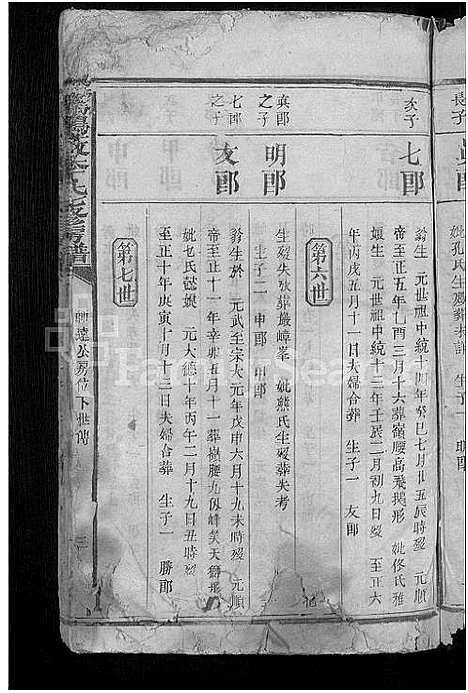 長子
貞郎
妣孔氏生歿葬未詳　生子一
次子
七郎
翁生　元世祖中統十四年癸巳七月廿五辰時歿　元順
帝至正五年乙酉三月十六葬嶺腰高飛鵝形　妣修氏雅
娘生　元世祖中統十三年壬辰二月初九日歿　至正六
年丙戌五月十一日夫婦合葬　生子一　友郎
第六世
貞郎
之子
明郎
生歿失攷葬嚴嶂峯　妣熊氏生歿葬失考
生子二　申郎　甲郎
七郎
之子
友郎
翁生於　元武至宗大元年戊申六月十九未時歿　元順
帝至正十一年辛卯五月十一葬嶺腰九似峰美天獅形
妣乜氏懿娘　元大德十年丙午二月十九日丑時歿
至正十年庚寅十月十三日夫婦合葬　生子一　勝郎
第七世
氏支修房譜
興達公房位下世傳
三